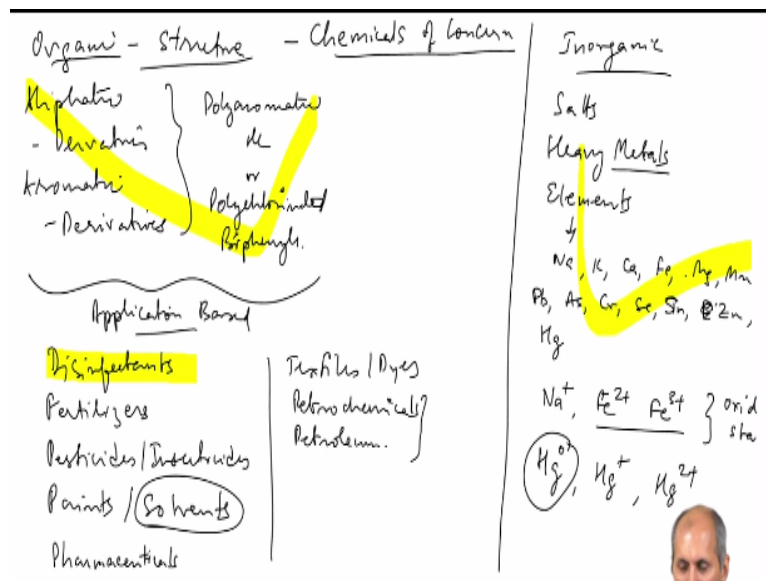 Organic - Structure - Chemicals of Concern
Aliphatic
- Derivatives
Aromatic
- Derivatives
Polyaromatic
HC
or
Polychlorinated
Biphenyls.
Application Based
Disinfectants
Fertilizers
Pesticides/Insecticides
Paints / Solvents
Pharmaceuticals
Textiles / Dyes
Petrochemicals
Petroleum.
Inorganic
Salts
Heavy Metals
Elements
Na, K, Ca, Fe, Mg, Mn
Pb, As, Cr, Se, Sn, Zn,
Hg
Na+, Fe2+ Fe3+ } oxid
sta
Hg0+, Hg+, Hg2+